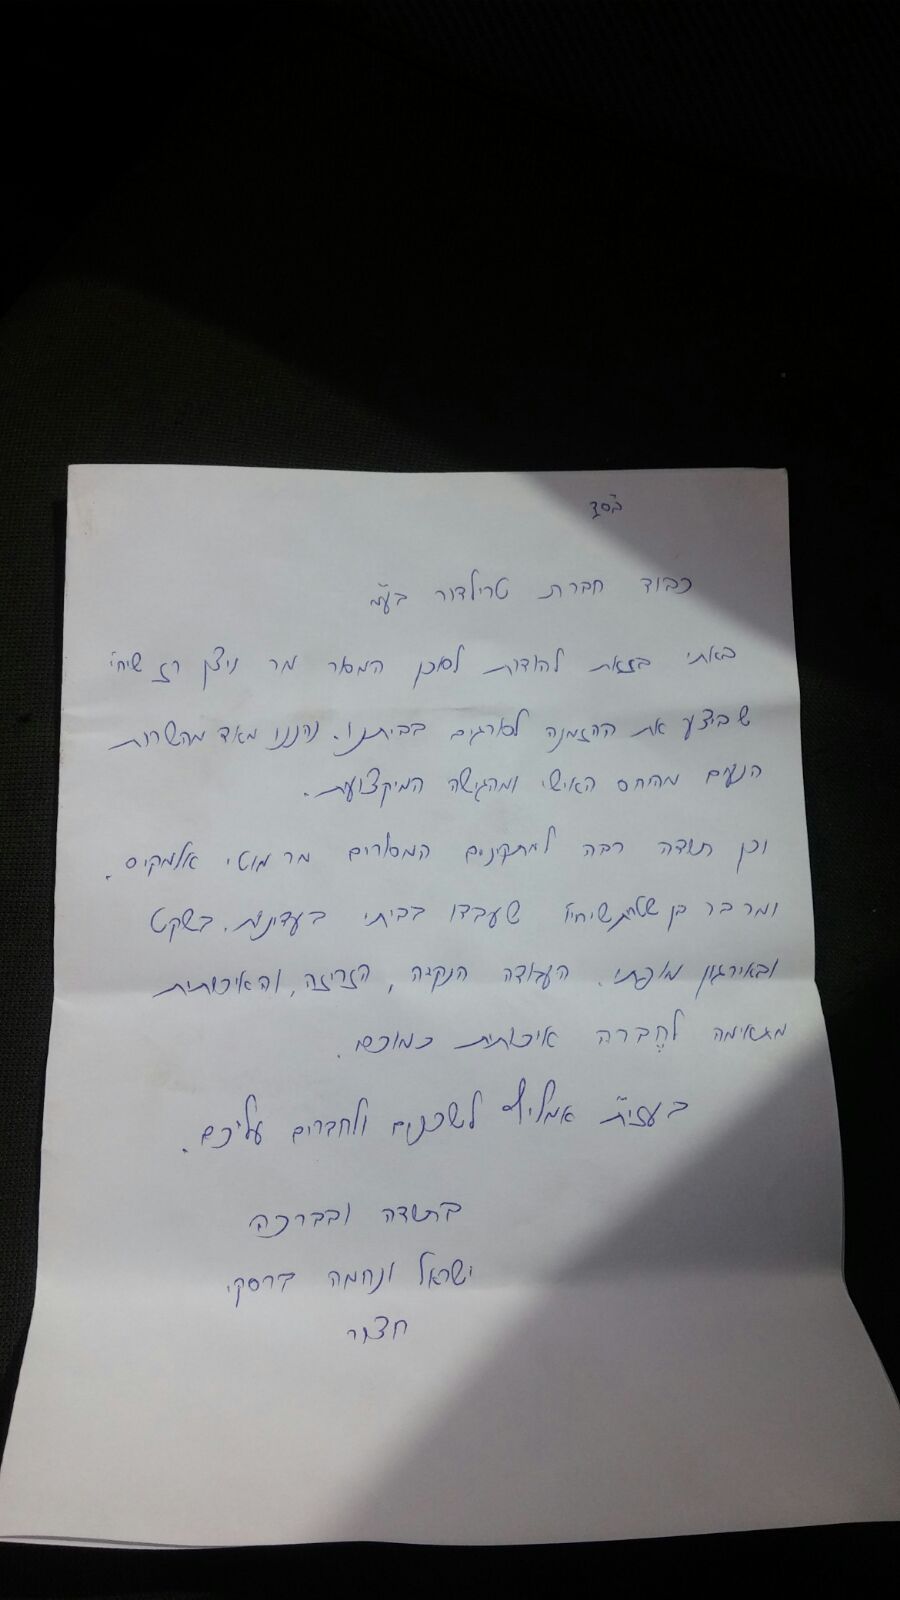 בס"ד
כבוד חברת טרילדור בע"מ
באתי בזאת להודות לסוכן המסור מר ניצן רז שיחי'
שבוצע את ההזמנה לסורגים בביתנו. נהננו מאד מהשרות
הנעים מהיחס האישי ומהגישה המיקצועית.
וכן תודה רבה למתקינים המסורים מר מוטי אלמקיס.
ומר בר בן שיחיו שעבדו בביתי בעדינות. בשקט
ובאירגון מופתי. העבודה הנקיה, הזריזה, והאיכותית
מתאימה לחֶברה איכותית כמוכם.
בעזי"ת אמליץ לשכנים ולחברים עליכם.
בתודה ובברכה
ישראל ונחמה ברסקי.
חצור